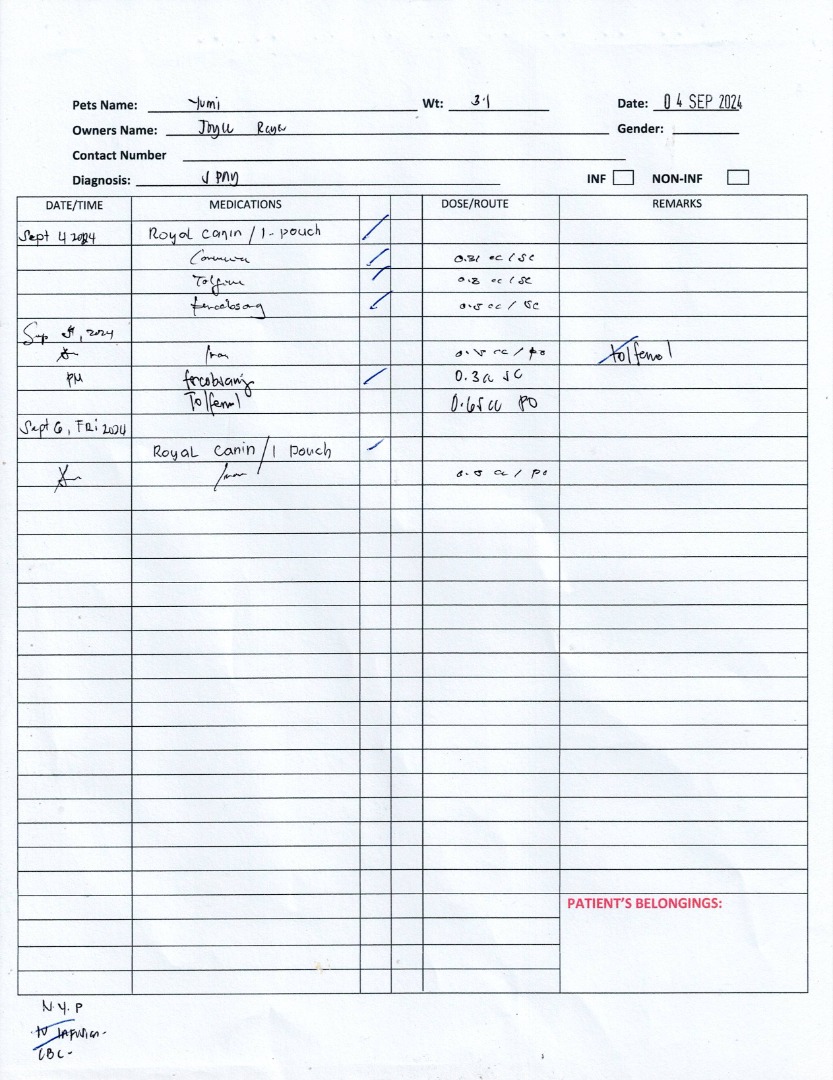 Pets Name: Yumi Wt: 3.1 Date: 04 SEP 2024
Owners Name: Joyce Gender:
Contact Number
Diagnosis: INF NON-INF
DATE/TIME MEDICATIONS DOSE/ROUTE REMARKS
Sept 4 2024 Royal canin / 1 - pouch
0.31 cc / SC
0.2 cc / SC
0.5 cc / SC
Sep 5, 2024
cc / po tolfenol
PM 0.3cc SC
Tolfenol 0.65cc PO
Sept 6, FRi 2024
Royal canin / 1 pouch
0.5 cc / po
PATIENT'S BELONGINGS:
N.Y.P
IV INFUSION -
CBC -